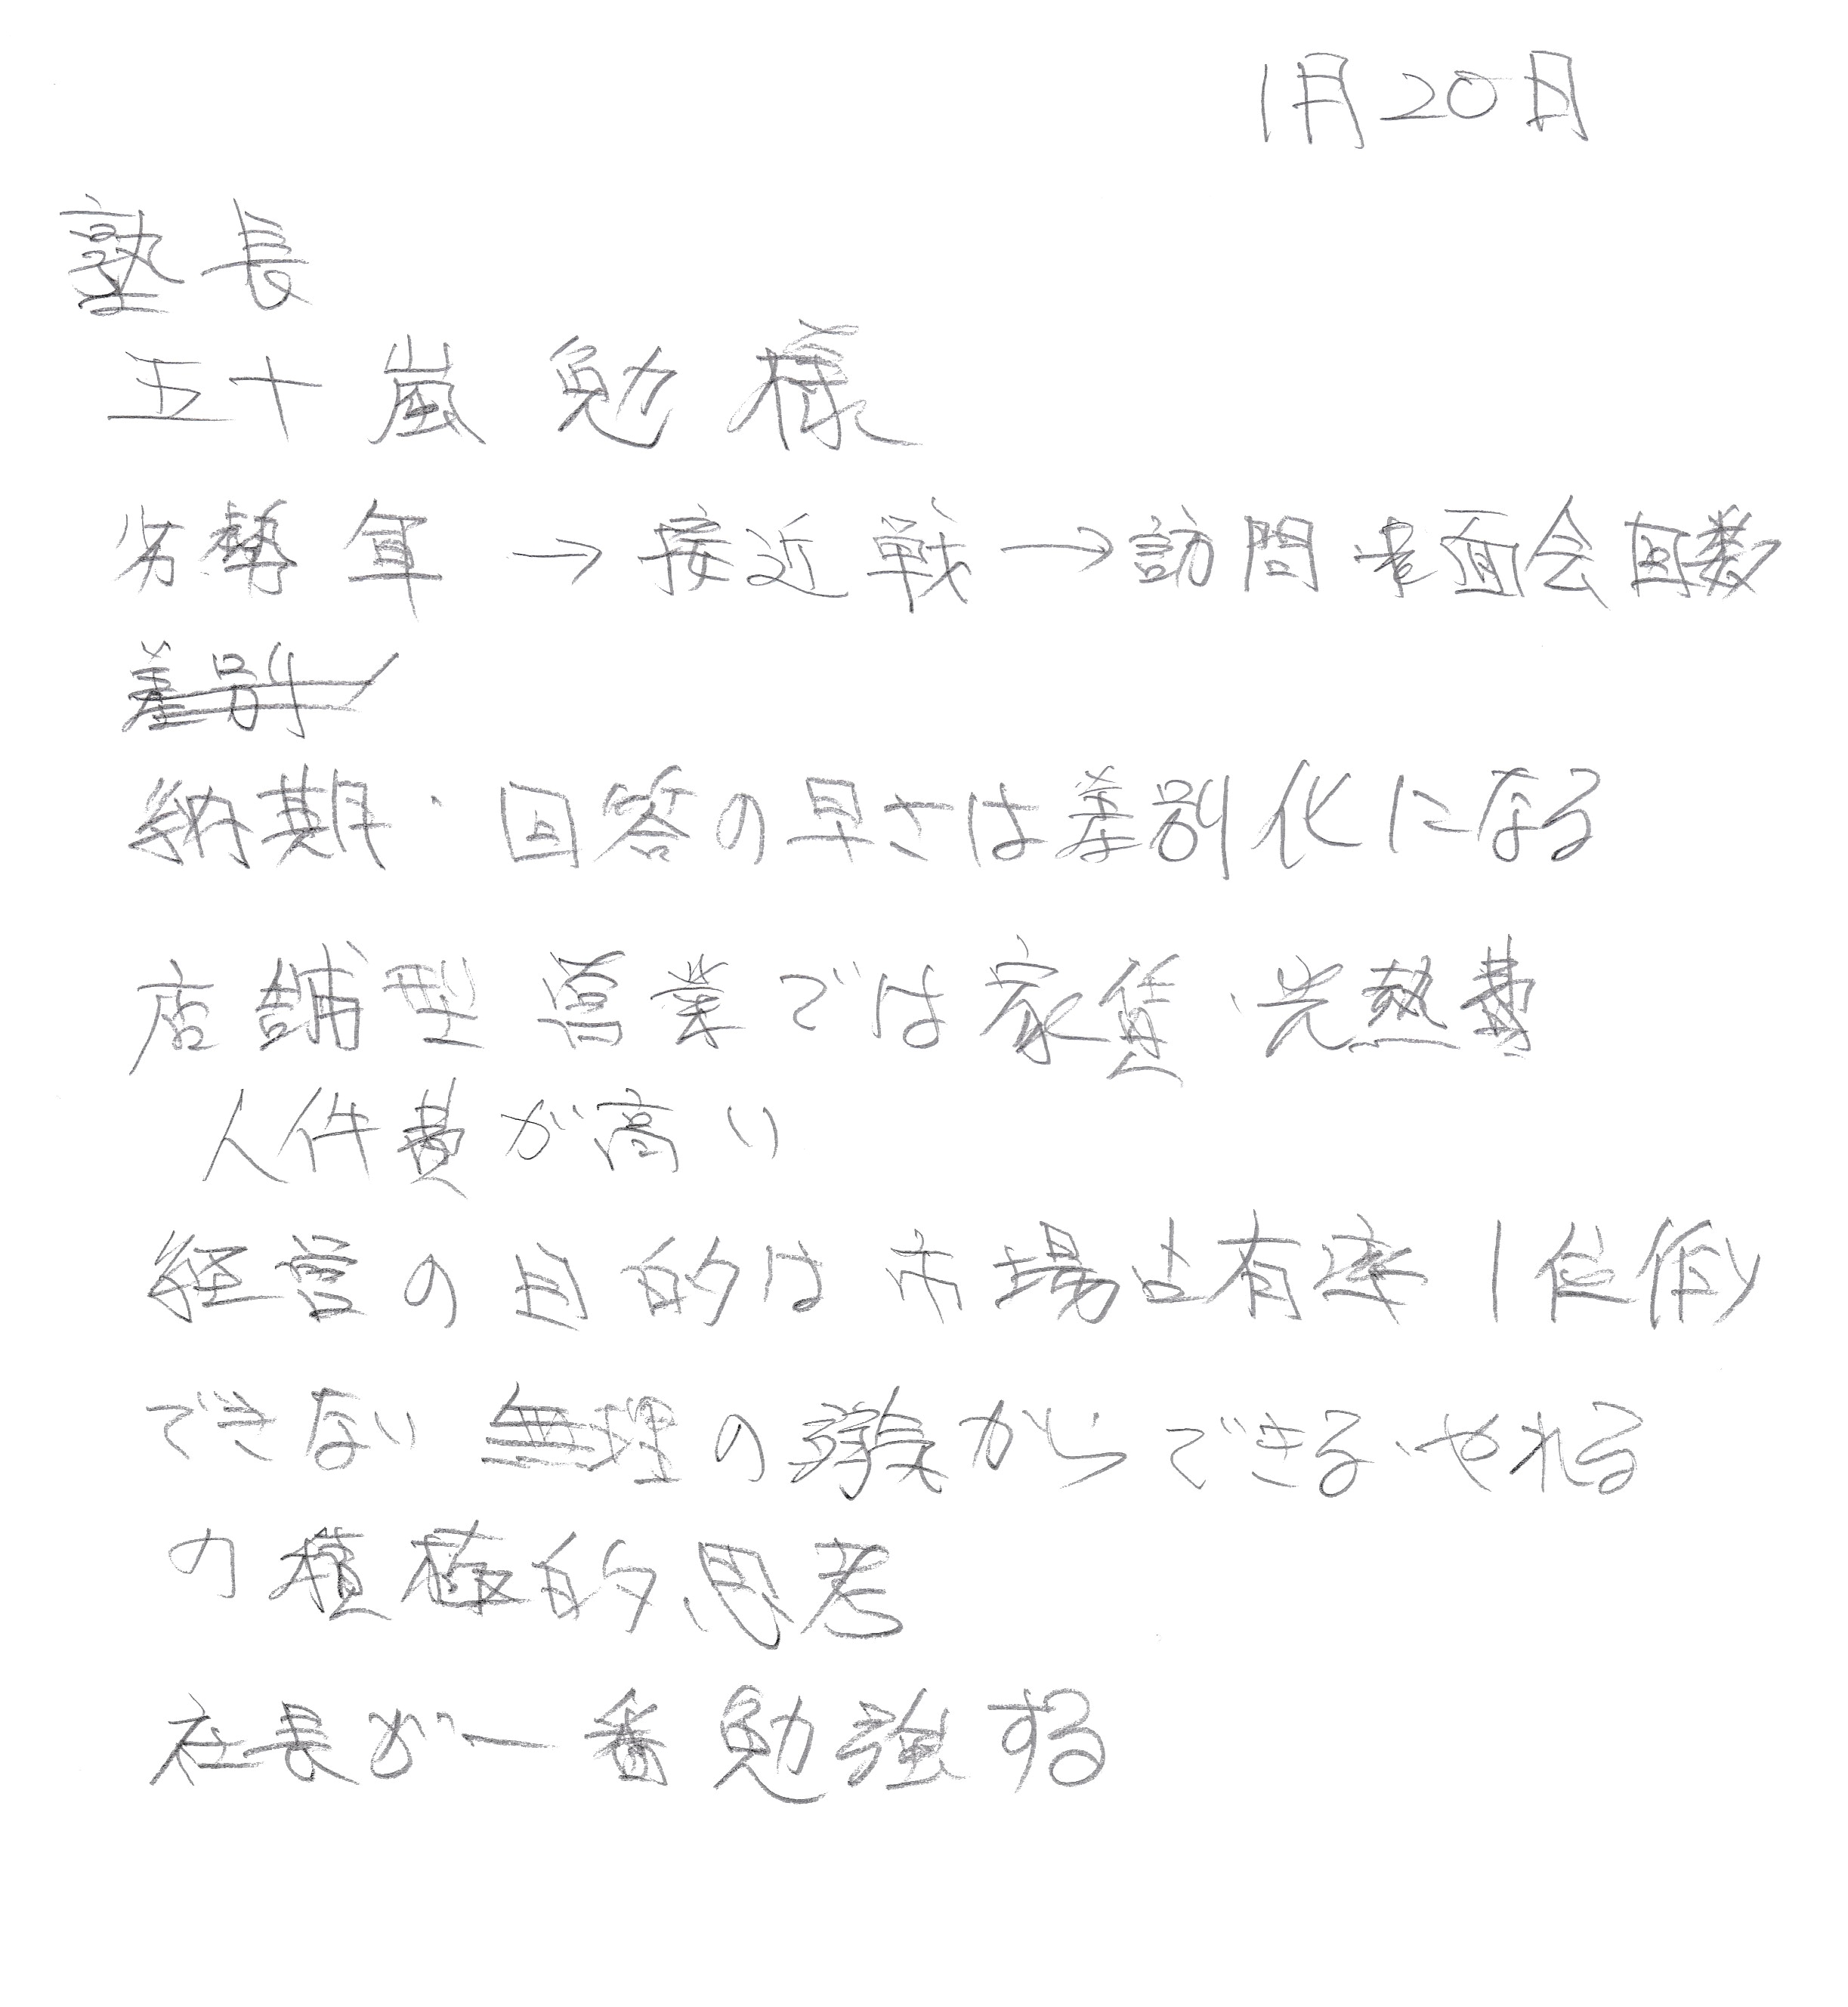 1月20日
塾長
五十嵐勉様
劣勢軍→接近戦→訪問 面会回数
差別
納期・回答の早さは差別化になる
店舗型営業では家賃・光熱費
人件費が高い
経営の目的は市場占有率1位作り
できない無理の発気からできる・やれる
の積極的思考
社長が一番勉強する